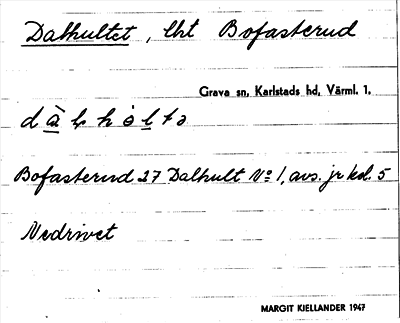 Dalhultet, lht Bofasterud
Grava sn, Karlstads hd, Värml. 1.
Bofasterud 27 Dalhult No 1, avs. jr kol. 5
Nedrivet
MARGIT KJELLANDER 1947